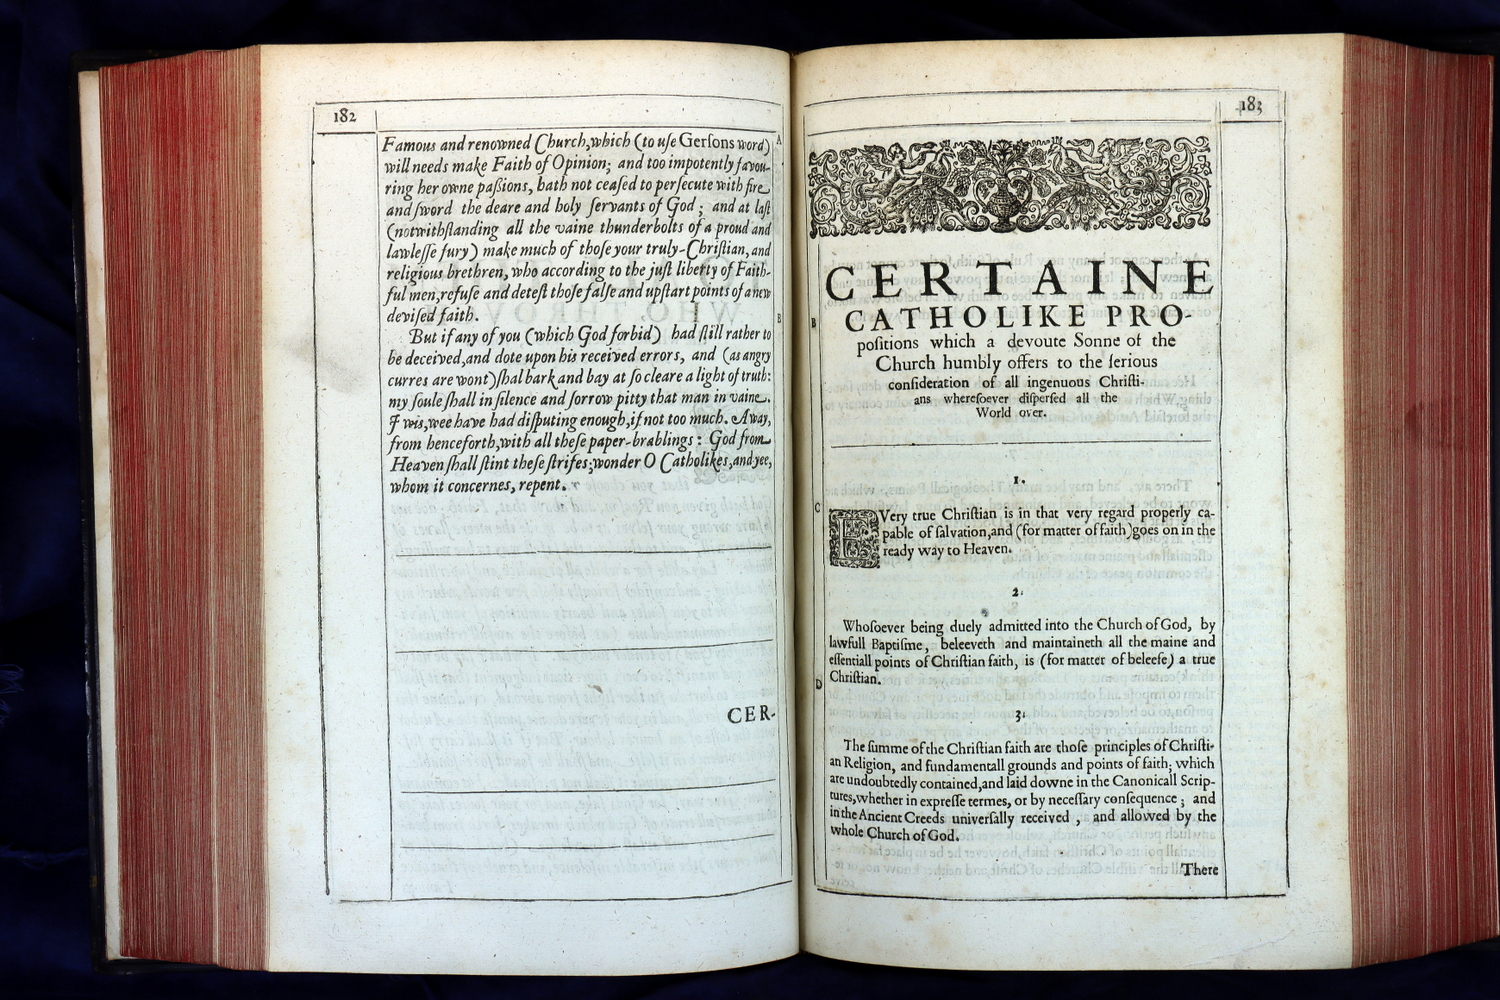 182
Famous and renowned Church, which (to uſe Gerſons word)
will needs make Faith of Opinion; and too impotently favou-
ring her owne paßions, hath not ceaſed to perſecute with fire
and ſword the deare and holy ſervants of God; and at laſt
(notwithſtanding all the vaine thunderbolts of a proud and
lawleſſe fury) make much of thoſe your truly-Chriſtian, and
religious brethren, who according to the juſt liberty of Faith-
ful men, refuſe and deteſt thoſe falſe and upſtart points of a new
deviſed faith.
But if any of you (which God forbid) had ſtill rather to
be deceived, and dote upon his received errors, and (as angry
curres are wont) ſhal bark and bay at ſo cleare a light of truth:
my ſoule ſhall in ſilence and ſorrow pitty that man in vaine.
I wis, wee have had diſputing enough, if not too much. Away,
from henceforth, with all theſe paper-brablings: God from
Heaven ſhall ſtint theſe ſtrifes; wonder O Catholikes, and yee,
whom it concernes, repent.
A
B
CER-
183
CERTAINE
CATHOLIKE PRO-
poſitions which a devoute Sonne of the
Church humbly offers to the ſerious
conſideration of all ingenuous Chriſti-
ans whereſoever diſperſed all the
World over.
B
1.
C
EVery true Chriſtian is in that very regard properly ca-
pable of ſalvation, and (for matter of faith) goes on in the
ready way to Heaven.
2.
Whoſoever being duely admitted into the Church of God, by
lawfull Baptiſme, beleeveth and maintaineth all the maine and
eſſentiall points of Chriſtian faith, is (for matter of beleefe) a true
Chriſtian.
D
3.
The ſumme of the Chriſtian faith are thoſe principles of Chriſti-
an Religion, and fundamentall grounds and points of faith; which
are undoubtedly contained, and laid downe in the Canonicall Scrip-
tures, whether in expreſſe termes, or by neceſſary conſequence; and
in the Ancient Creeds univerſally received, and allowed by the
whole Church of God.
There